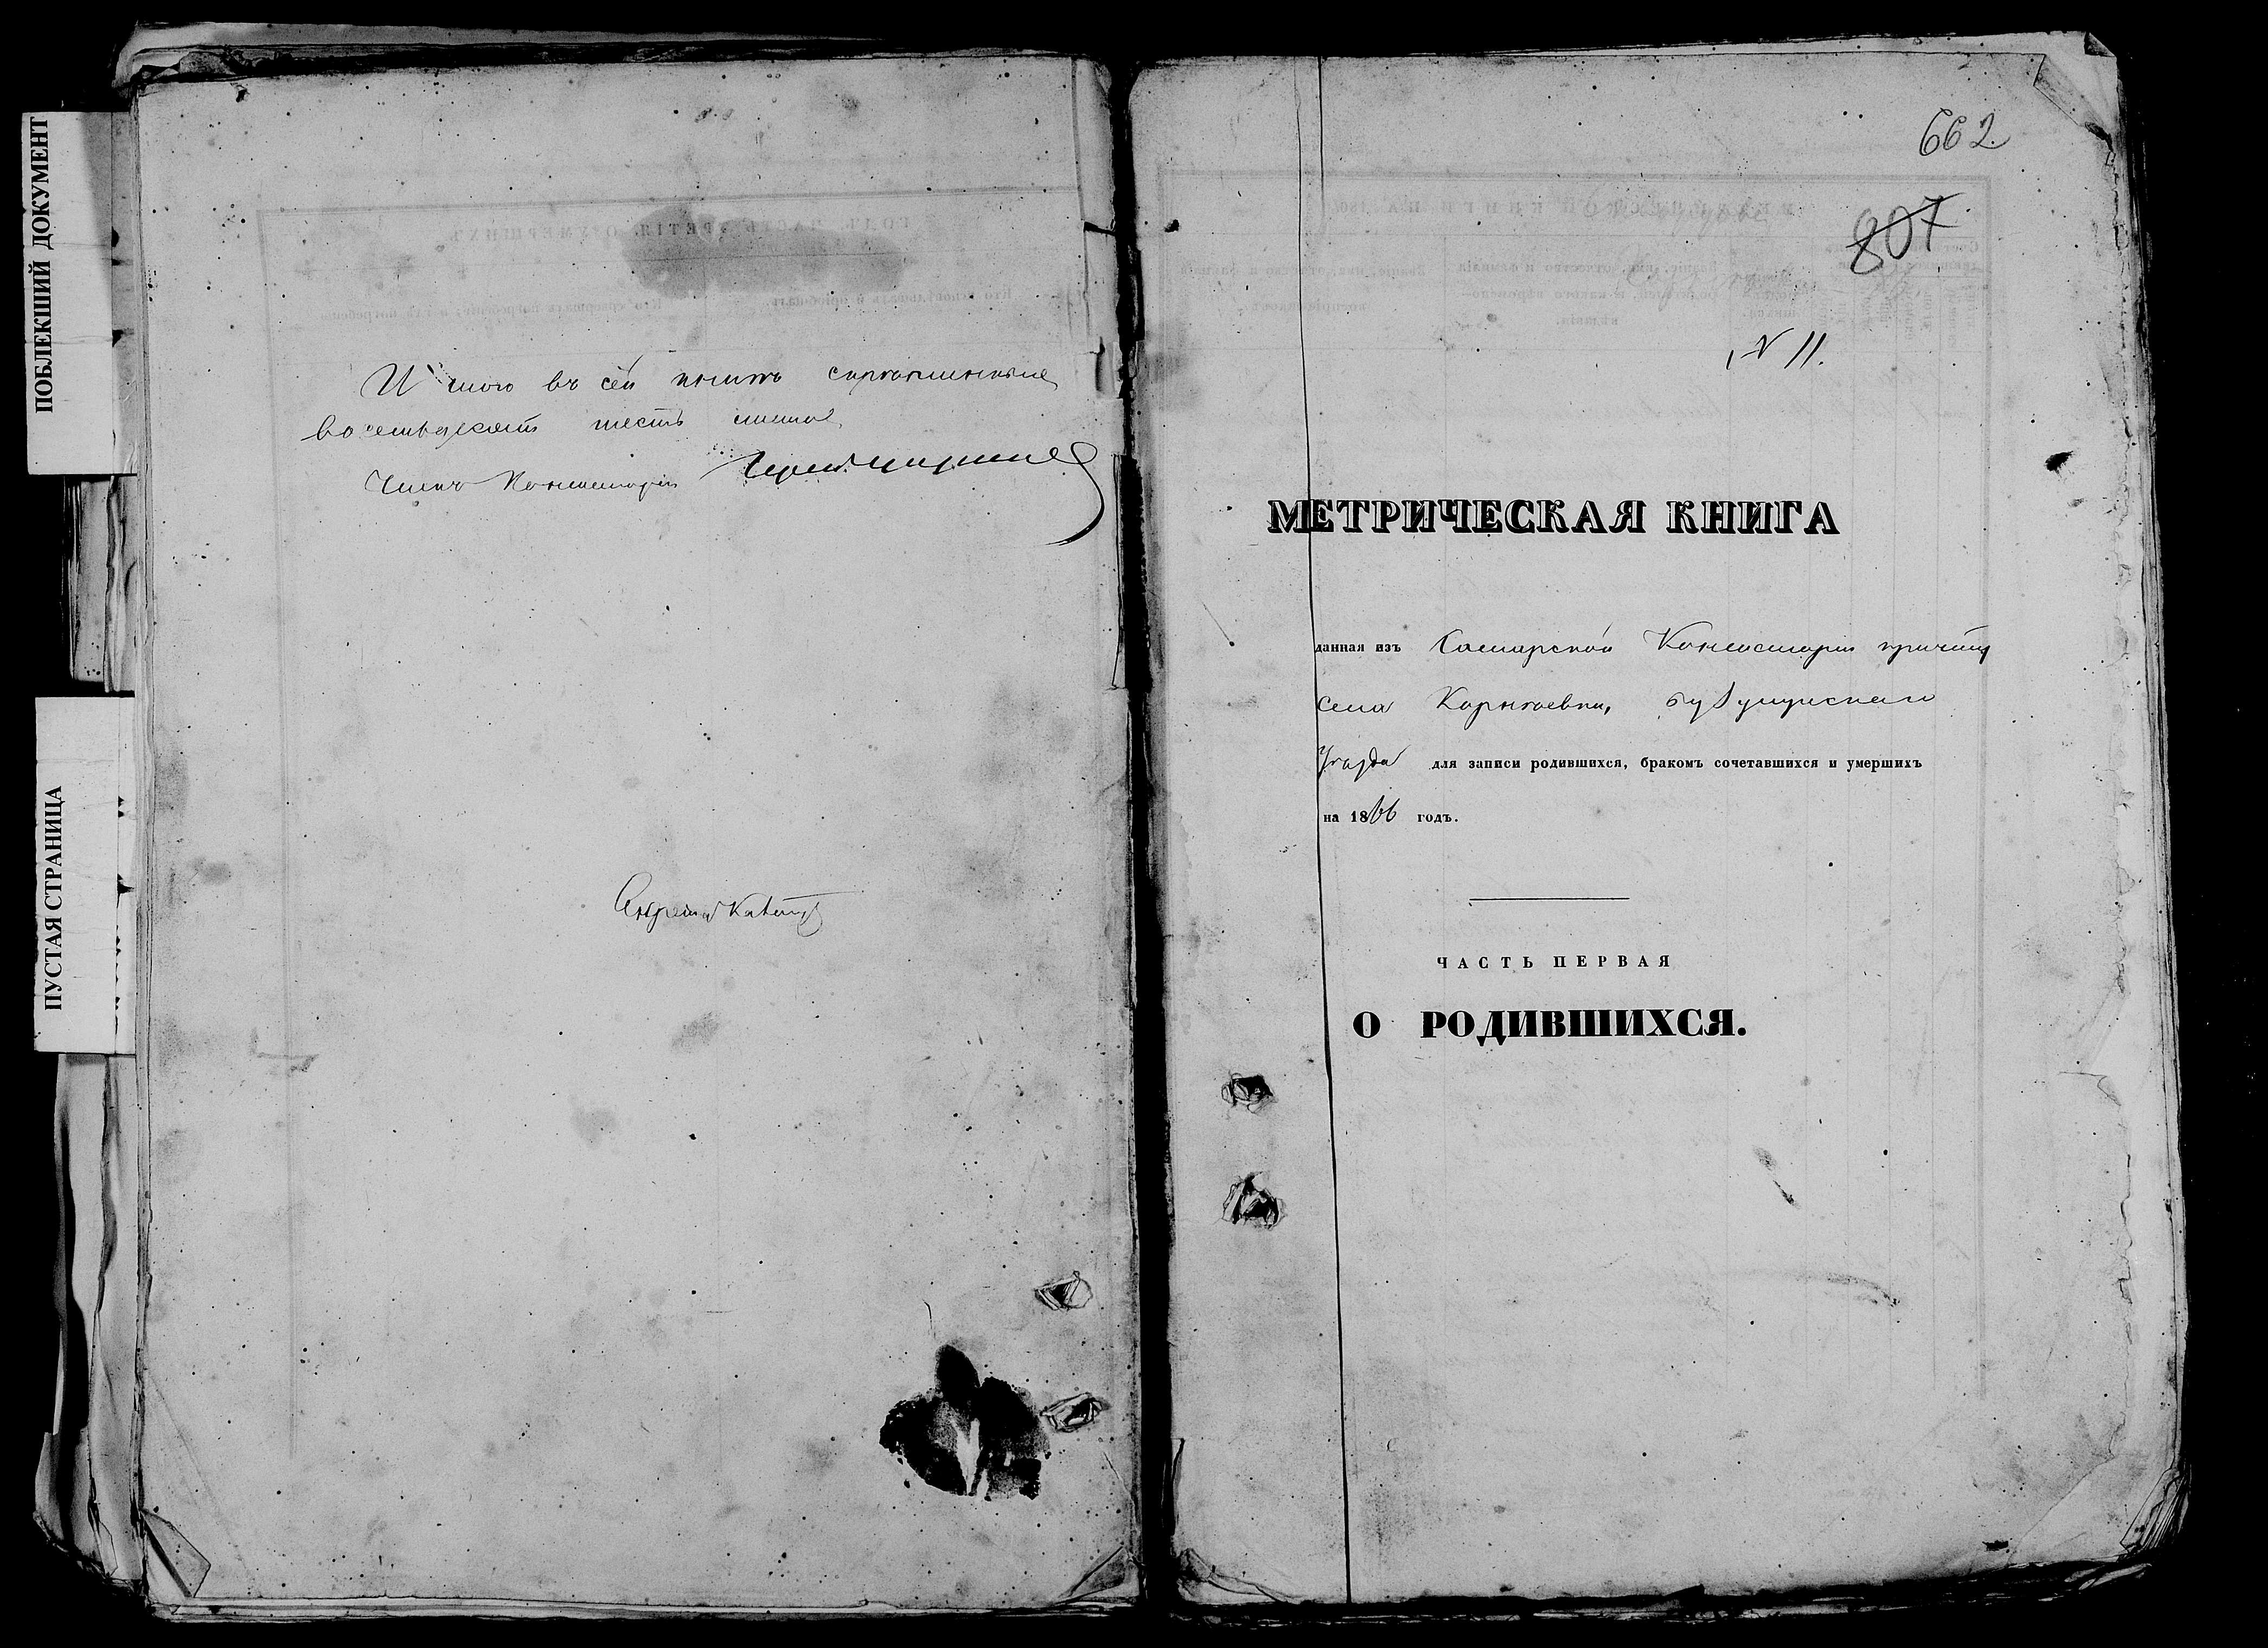 ПОБЛЕКШИЙ ДОКУМЕНТ
ПУСТАЯ СТРАНИЦА
Итого въ сей книгѣ
восемьдесятъ шесть
Членъ Консисторіи
662
807
№ 11.
МЕТРИЧЕСКАЯ КНИГА
данная изъ Самарской Консисторіи причту
села Корнѣевки, Бузулукскаго
Уѣзда для записи родившихся, бракомъ сочетавшихся и умершихъ
на 1866 годъ.
ЧАСТЬ ПЕРВАЯ
О РОДИВШИХСЯ.